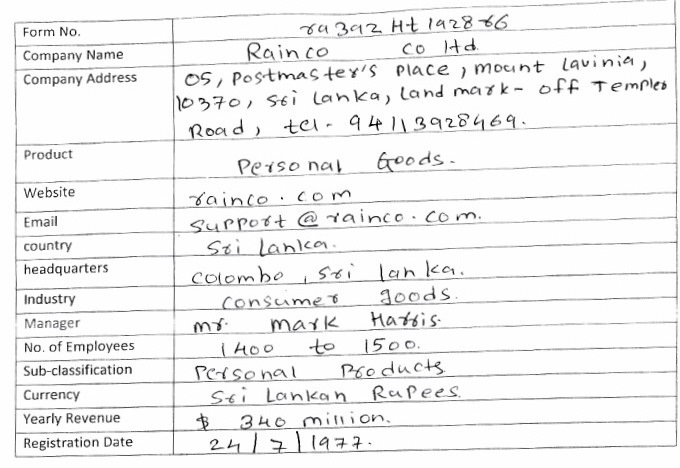 Form No. ra392 Ht 192866
Company Name Rainco co ltd.
Company Address 05, Postmaster's Place, mount lavinia,
10370, Sri lanka, land mark- off Templer
Road, tel- 94113928469.
Product Personal Goods.
Website rainco.com
Email support@rainco.com.
country Sri lanka.
headquarters colombo, Sri lanka.
Industry consumer goods.
Manager mr. mark Harris.
No. of Employees 1400 to 1500.
Sub-classification Personal Products
Currency Sri Lankan Rupees.
Yearly Revenue $ 340 million.
Registration Date 24/7/1977.